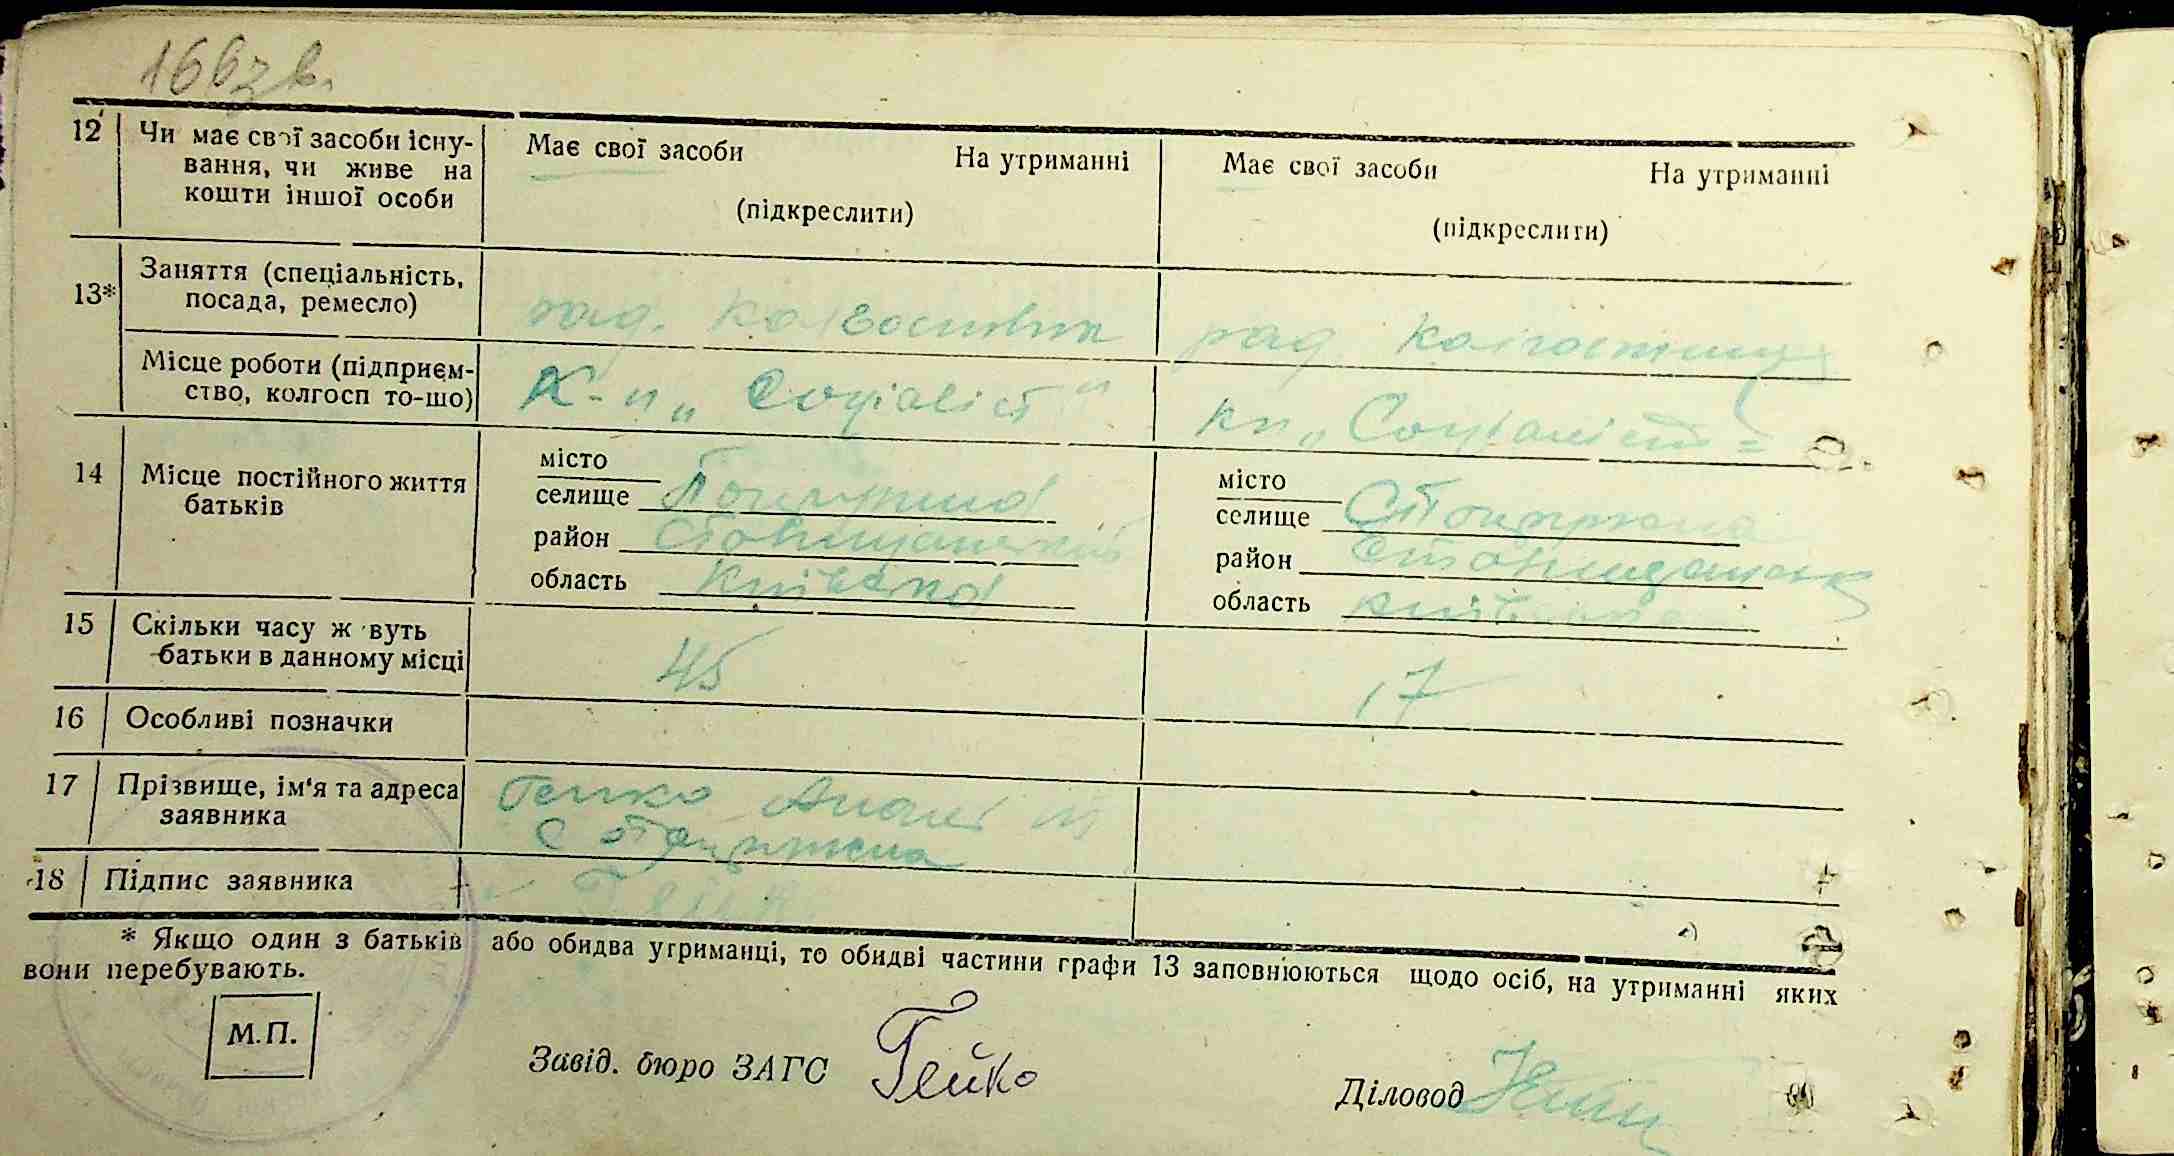 166 зв.
12 Чи має свої засоби існу-
вання, чи живе на
кошти іншої особи
Має свої засоби На утриманні
(підкреслити)
Має свої засоби На утриманні
(підкреслити)
13* Заняття (спеціальність,
посада, ремесло)
ряд. колгоспник
ряд колгоспниця
Місце роботи (підприєм-
ство, колгосп то-що)
К-п „Соціаліст"
кп „Соціаліст"
14 Місце постійного життя
батьків
місто
селище
район
область Київської
місто
селище
район
область
15 Скільки часу живуть
батьки в данному місці
45
17
16 Особливі позначки
17 Прізвище, ім'я та адреса
заявника
Гейко
18 Підпис заявника
Гейко
* Якщо один з батьків або обидва утриманці, то обидві частини графи 13 заповнюються щодо осіб, на утриманні яких
вони перебувають.
М.П.
Завід. бюро ЗАГС Гейко
Діловод